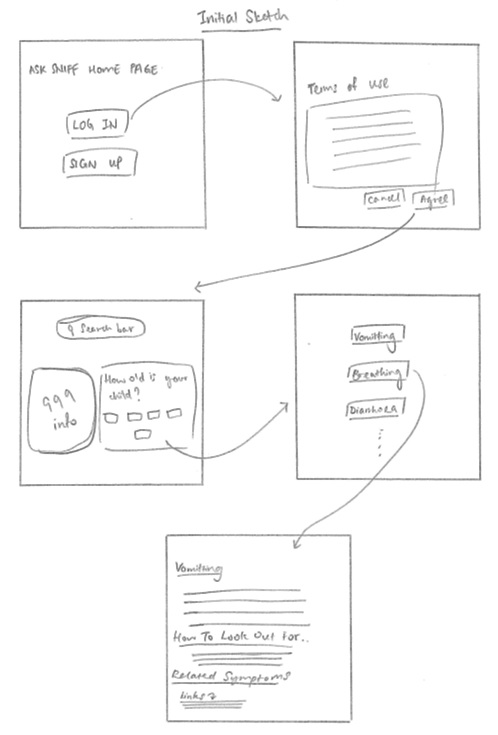 Initial Sketch
ASK SNIFF HOME PAGE
LOG IN
SIGN UP
Terms of Use
Cancel
Agree
Search bar
999
info
How old is your
child?
Vomiting
Breathing
Diarrhoea
Vomiting
How To Look Out For..
Related Symptoms
links